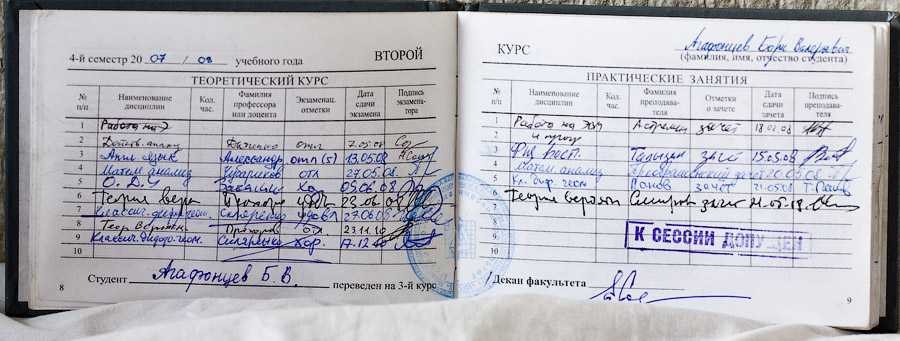 4-й семестр 20 07 / 08 учебного года ВТОРОЙ
ТЕОРЕТИЧЕСКИЙ КУРС
№ п/п Наименование дисциплин Кол. час. Фамилия профессора или доцента Экзаменац. отметки Дата сдачи экзамена Подпись экзамена-тора
1 Работа на
2
3 Англ язык Александр отл (5) 13.05.08
4 Матем анализ отл 27.05.08
5 О.Д.У. Хор 05.06.08
6 Теория вер. Прохоров 23.06.08
7 Классич. дифф. геом. Скляренко удовл 27.06.08
8 Теор Вероятн Прохоров отл 23.11.10
9 Классич. дифф. геом. Скляренко Хор. 17.12.10
10
Студент Агафонцев Б. В. переведен на 3-й курс
8
КУРС Агафонцев Борис Валерьевич
(фамилия, имя, отчество студента)
ПРАКТИЧЕСКИЕ ЗАНЯТИЯ
№ п/п Наименование дисциплин Кол. час. Фамилия преподава-теля Отметки о зачете Дата сдачи зачета Подпись преподава-теля
1 Работа на ЭВМ зачет 18.02.08
2 и прогр
3 Физ. Восп. зачет 15.05.08
4 Матем. анализ зачет 20.05.08
5 Кл. диф. геом Панов зачет 21.05.08
6 Теория вероятн Смирнов зачет
7
8
9
10
К СЕССИИ ДОПУЩЕН
Декан факультета
9